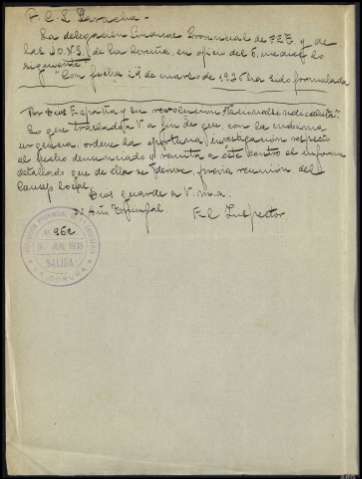 La delegación Provincial de F.E.T. y de
las J.O.N.S. de La Coruña, en oficio del 6, me dice lo
siguiente
"Con fecha de marzo de 193 ha sido formulada
Por Dios España y su revolución Nacionalsindicalista".
Lo que traslado a V a fin de que con la máxima
urgencia, ordene la oportuna investigación respecto
al hecho denunciado y remita a este Centro el informe
detallado que de ella se derive, previa reunión del
Consejo local.
Dios guarde a V. m. a.
Año Triunfal
El Inspector
962
SALIDA
LA CORUÑA